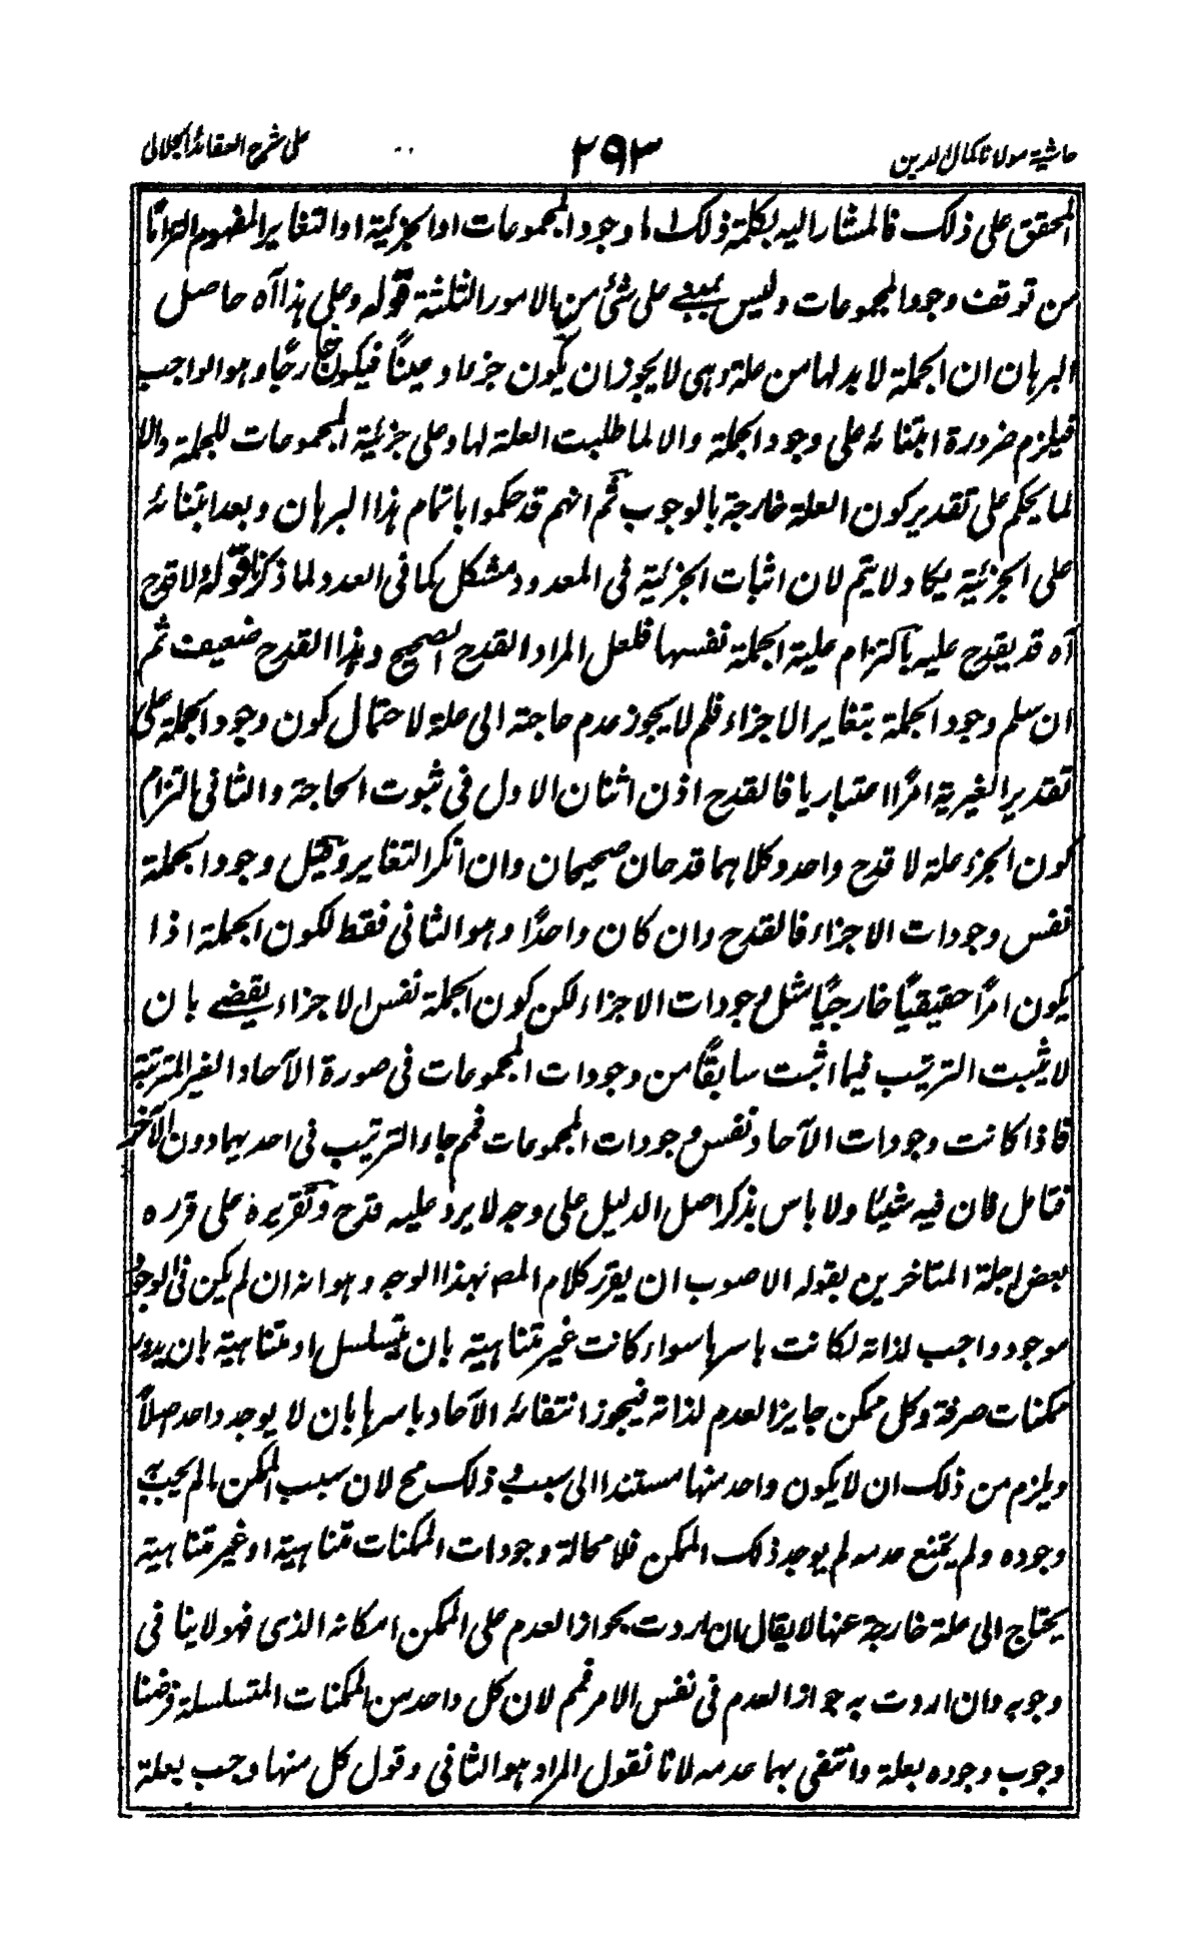 حاشية مولانا كمال الدين
٢٩٣
على شرح العقائد الجلالى
المحقق على ذلك فالمشار اليه بكلمة ذلك اما وجود المجموعات او الجزئية او التغاير المفهوم التزاما
من توقف وجود المجموعات وليس بمبنى على شئ من الامور الثلثة قوله وعلى هذا آه حاصل
البرهان ان الجملة لا بد لها من علة وهى لا يجوز ان يكون جزءا وعينًا فيكون خارجًا وهو الواجب
فيلزم ضرورة ابتنائه على وجود الجملة والا لما طلبت العلة لها وعلى جزئية المجموعات للجملة والا
لما يحكم على تقدير كون العلة خارجة بالوجوب ثم انهم قد حكموا باتمام هذا البرهان وبعد ابتنائه
على الجزئية يكاد لا يتم لان اثبات الجزئية فى المعدود مشكل كما فى العدد لما ذكرنا قوله لا قدح
آه قد يقدح عليه بالتزام علية الجملة نفسها فلعل المراد القدح الصحيح وهذا القدح ضعيف ثم
ان سلم وجود الجملة بتغاير الاجزاء فلم لا يجوز عدم حاجة الى علة لاحتمال كون وجود الجملة على
تقدير الغيرية امرًا اعتباريا فالقدح اذن اثنان الاول فى ثبوت الحاجة والثانى التزام
كون الجزء علة لا قدح واحد وكلاهما قدحان صحيحان وان انكر التغاير وقيل وجود الجملة
نفس وجودات الاجزاء فالقدح وان كان واحدًا وهو الثانى فقط لكون الجملة اذا
يكون امرًا حقيقيًا خارجيًا مثل وجودات الاجزاء لكن كون الجملة نفس الاجزاء يقضے بان
لا يثبت الترتيب فيما اثبت سابقًا من وجودات المجموعات فى صورة الآحاد الغير المترتبة
فاذا كانت وجودات الآحاد نفس وجودات المجموعات فمم جاء الترتيب فى احديهما دون الآخر
فتامل فان فيه شيئا ولا باس بذكر اصل الدليل على وجه لا يرد عليه قدح وتقريره على قرره
بعض اجلة المتاخرين بقوله الاصوب ان يقرر كلام المصـ بهذا الوجه وهو انه ان لم يكن فى الوجود
موجود واجب لذاته لكانت باسرها سواء كانت غير متناهية بان يتسلسل او متناهية بان يدور
ممكنات صرفة وكل ممكن جايز العدم لذاته فيجوز انتفائه الآحاد باسرها بان لا يوجد واحد اصلاً
ويلزم من ذلك ان لا يكون واحد منها مستندا الى سبب وذلك مح لان سبب الممكن ما لم يجب به
وجوده ولم يمتنع عدمه لم يوجد ذلك الممكن فلا محالة وجودات الممكنات متناهية او غير متناهية
يحتاج الى علة خارجة عنها لا يقال ان اردت بجواز العدم على الممكن امكانه الذى فهو لا ينافى
وجوبه وان اردت به جواز العدم فى نفس الامر فمم لان كل واحد من الممكنات المتسلسلة فرضنا
وجوب وجوده بعلة وانتفى بها عدمه لانا نقول المراد هو الثانى وقول كل منها وجب بعلة